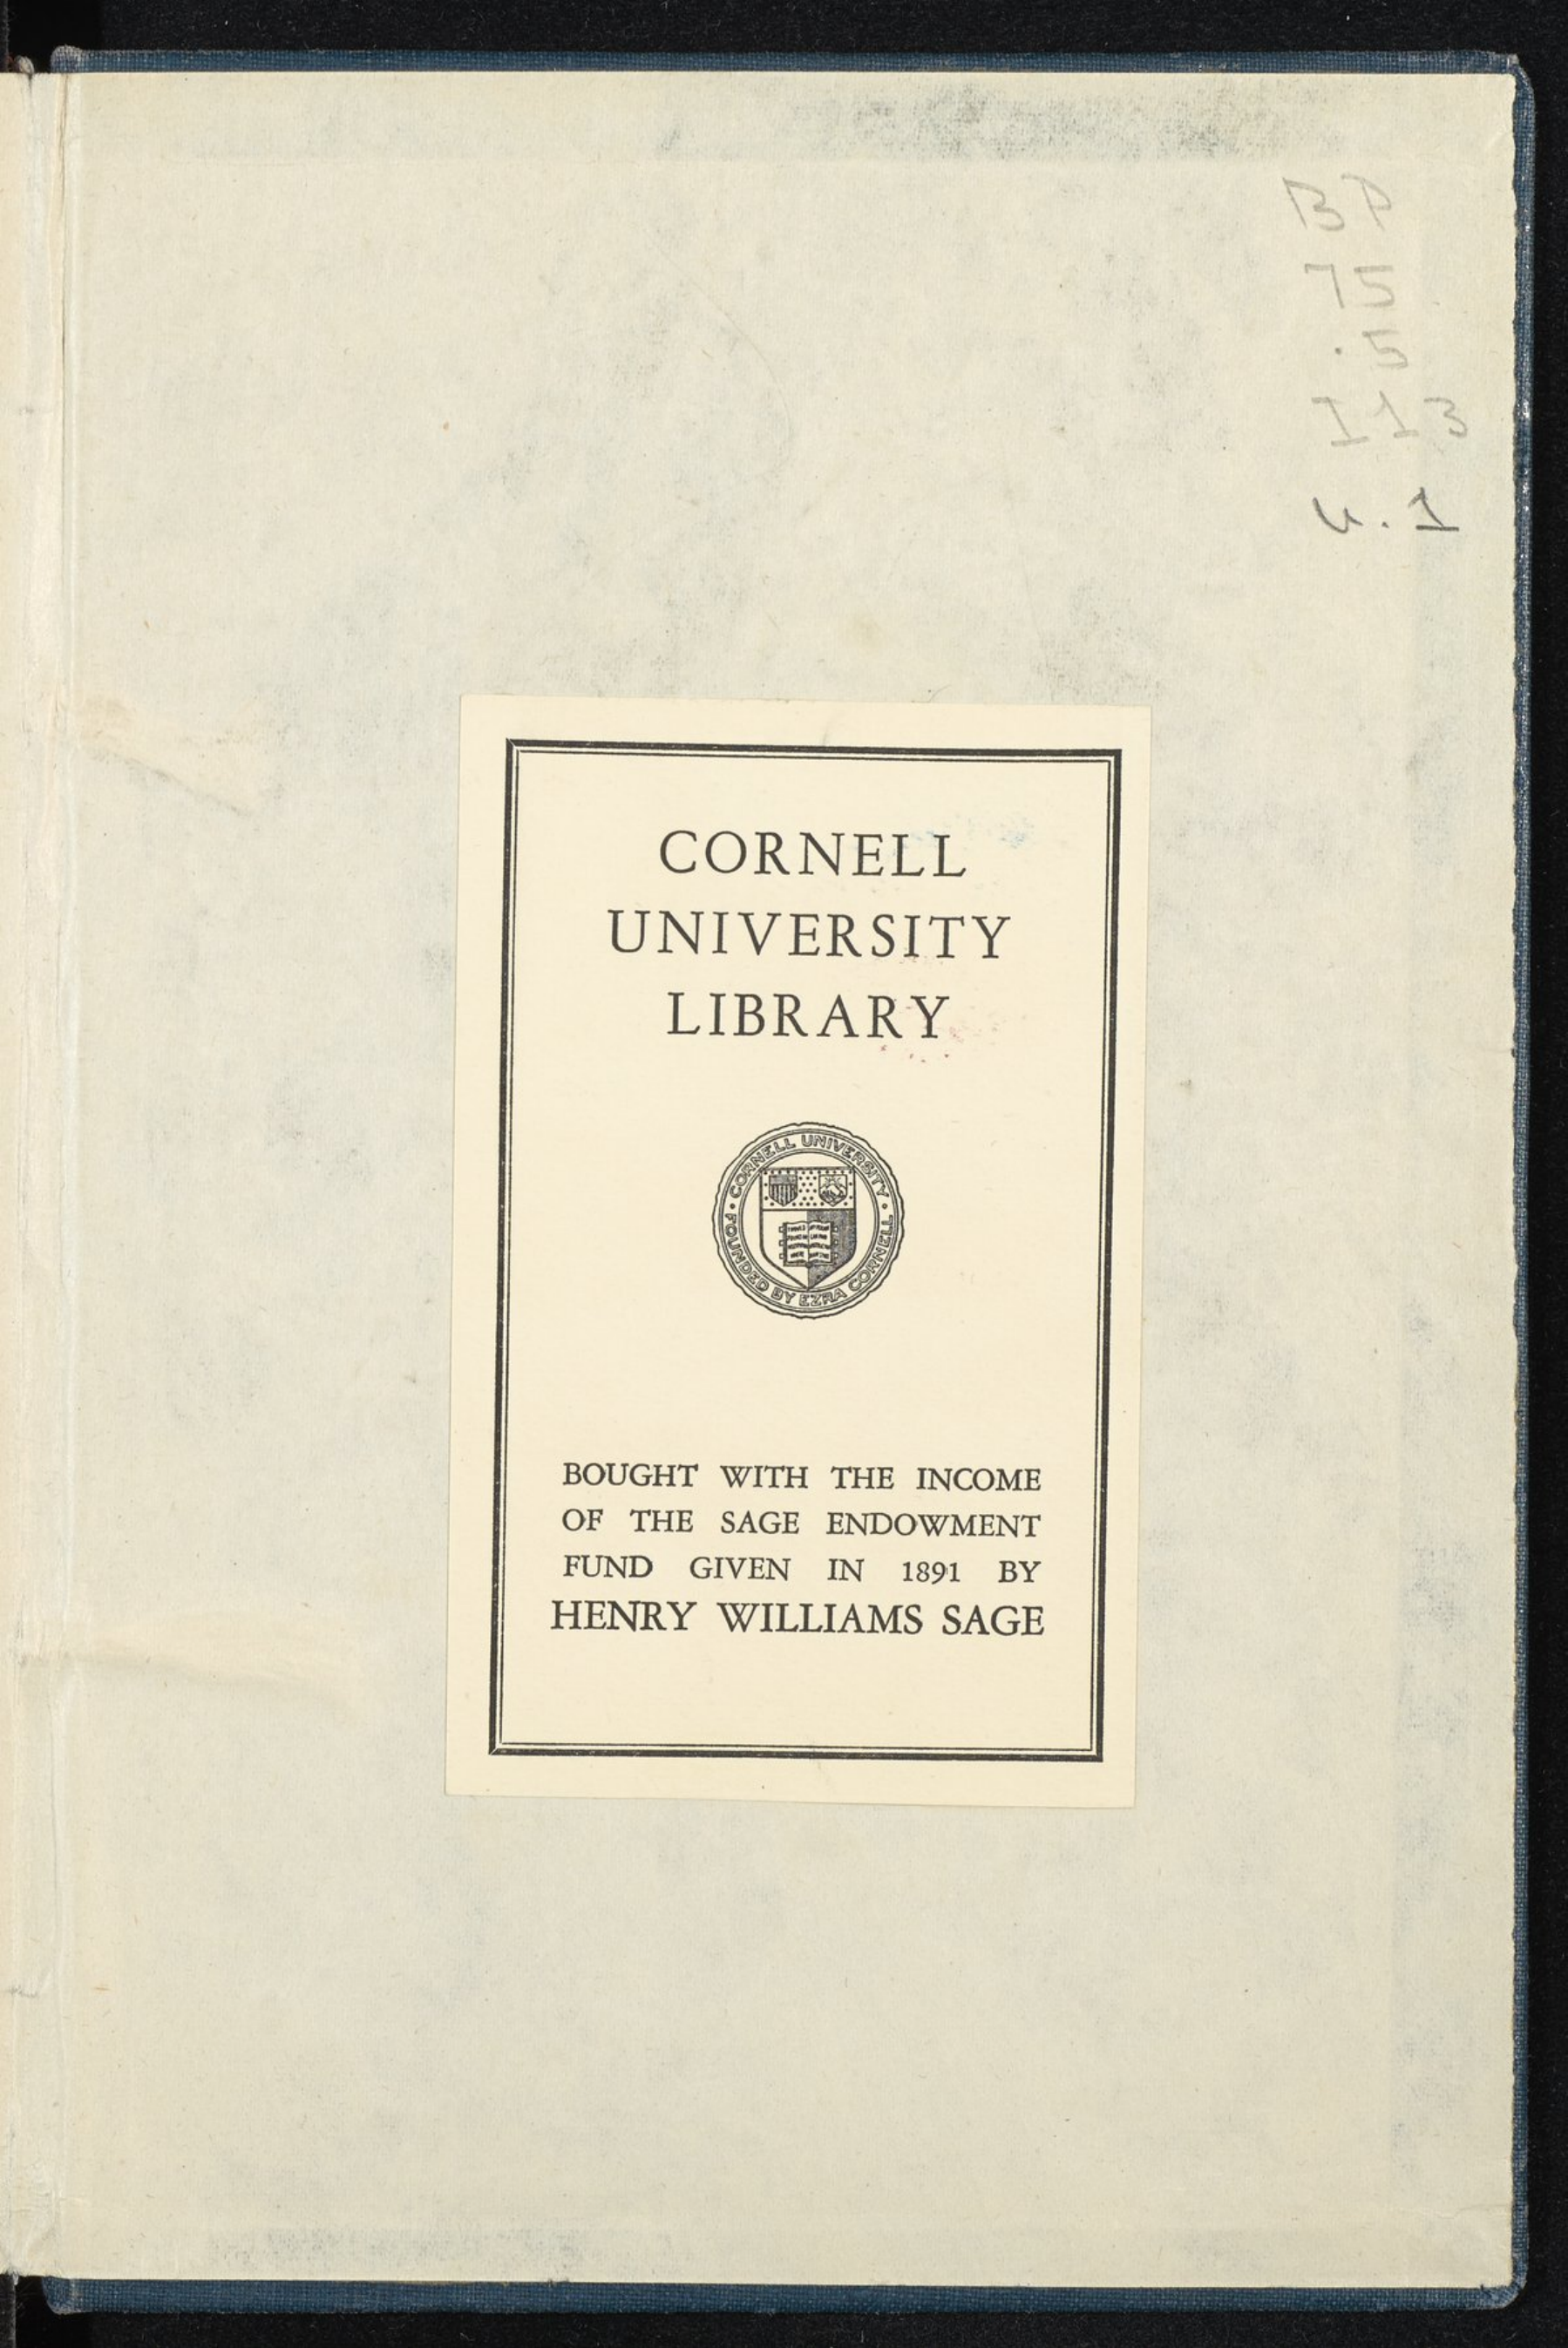 BP
75
.5
I13
v.1
CORNELL
UNIVERSITY
LIBRARY
CORNELL UNIVERSITY
FOUNDED BY EZRA CORNELL
BOUGHT WITH THE INCOME
OF THE SAGE ENDOWMENT
FUND GIVEN IN 1891 BY
HENRY WILLIAMS SAGE